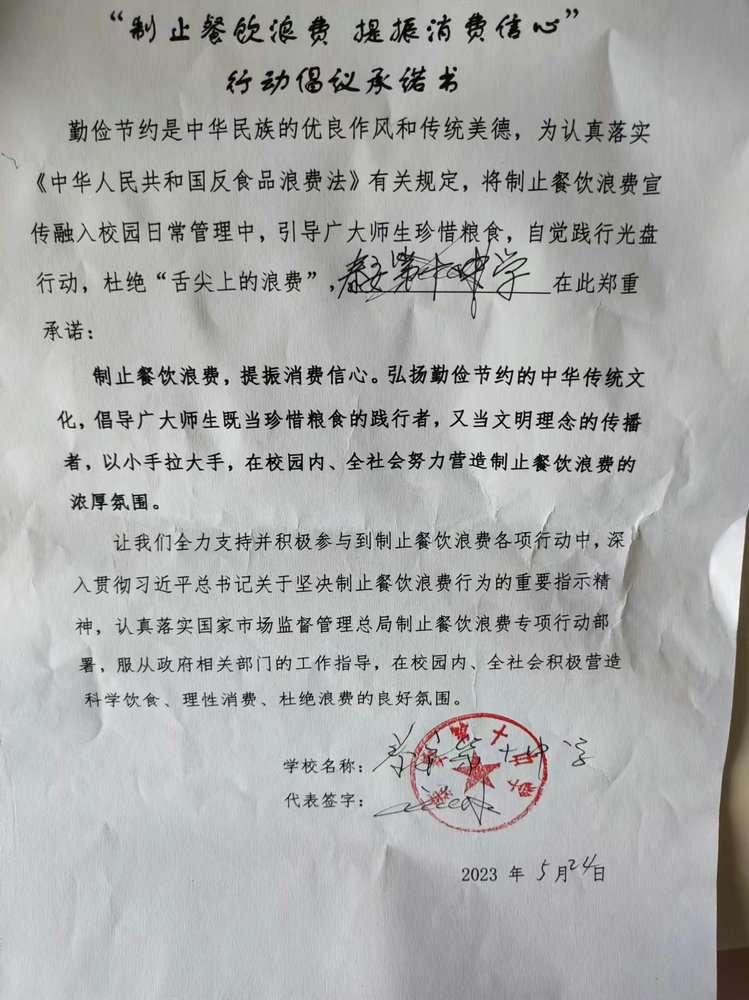 “制止餐饮浪费 提振消费信心”
行动倡议承诺书
勤俭节约是中华民族的优良作风和传统美德，为认真落实
《中华人民共和国反食品浪费法》有关规定，将制止餐饮浪费宣
传融入校园日常管理中，引导广大师生珍惜粮食，自觉践行光盘
行动，杜绝“舌尖上的浪费”，第十中学在此郑重
承诺：
制止餐饮浪费，提振消费信心。弘扬勤俭节约的中华传统文
化，倡导广大师生既当珍惜粮食的践行者，又当文明理念的传播
者，以小手拉大手，在校园内、全社会努力营造制止餐饮浪费的
浓厚氛围。
让我们全力支持并积极参与到制止餐饮浪费各项行动中，深
入贯彻习近平总书记关于坚决制止餐饮浪费行为的重要指示精
神，认真落实国家市场监督管理总局制止餐饮浪费专项行动部
署，服从政府相关部门的工作指导，在校园内、全社会积极营造
科学饮食、理性消费、杜绝浪费的良好氛围。
学校名称：第十中学
代表签字：
2023 年 5月24日